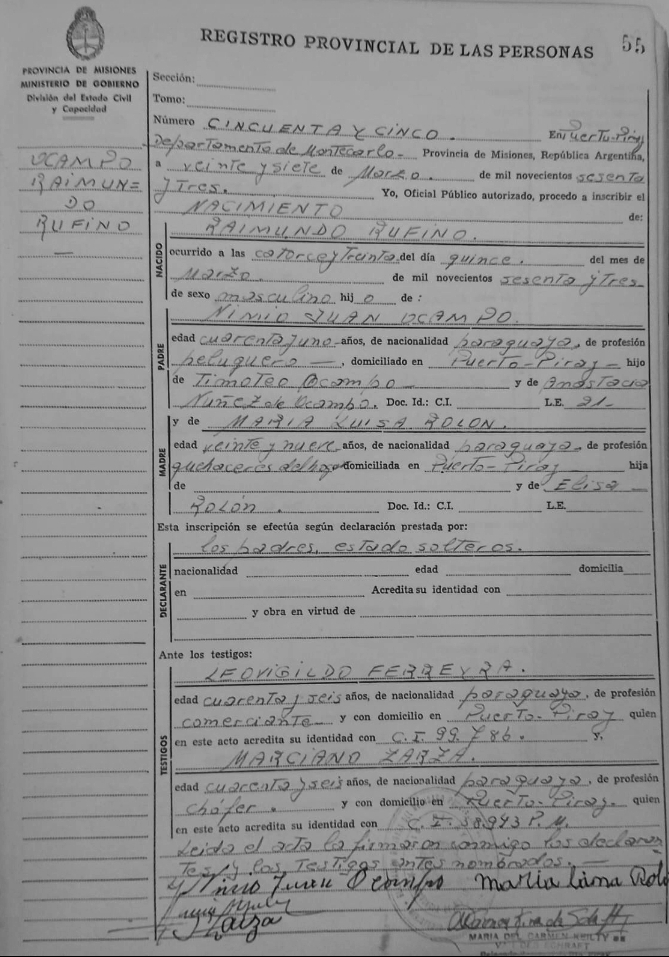 REGISTRO PROVINCIAL DE LAS PERSONAS
55
PROVINCIA DE MISIONES
MINISTERIO DE GOBIERNO
División del Estado Civil
y Capacidad
OCAMPO
RAIMUN=
DO
RUFINO
Sección:
Tomo:
Número CINCUENTA Y CINCO. En Puerto-Piray
Departamento de Montecarlo- Provincia de Misiones, República Argentina,
a veinte y siete de Marzo de mil novecientos sesenta
y Tres. Yo, Oficial Público autorizado, procedo a inscribir el
NACIMIENTO de:
RAIMUNDO RUFINO.
NACIDO
ocurrido a las catorce y treinta del día quince. del mes de
Marzo de mil novecientos sesenta y Tres
de sexo masculino hijo de :
NIMIO JUAN OCAMPO.
PADRE
edad cuarenta y uno años, de nacionalidad paraguaya, de profesión
peluquero —, domiciliado en Puerto-Piray- hijo
de Timoteo Ocampo y de Anastacia
Nuñez de Ocampo. Doc. Id.: C.I. L.E. 21-
y de MARIA LUISA ROLON.
MADRE
edad veinte y nueve años, de nacionalidad paraguaya. de profesión
quehaceres del hogar domiciliada en Puerto-Piray hija
de y de Elisa
Rolón. Doc. Id.: C.I. L.E.
Esta inscripción se efectúa según declaración prestada por:
los padres, estado solteros.
DECLARANTE
nacionalidad edad domicilia
en Acredita su identidad con
y obra en virtud de
Ante los testigos:
LEOVIGILDO FERREYRA.
TESTIGOS
edad cuarenta y seis años, de nacionalidad paraguaya, de profesión
comerciante y con domicilio en Puerto-Piray quien
en este acto acredita su identidad con C.I. 99.786. y,
MARCIANO ZARZA.
edad cuarenta y seis años, de nacionalidad paraguaya. de profesión
chófer. y con domicilio en Puerto-Piray. quien
en este acto acredita su identidad con C.I. 58943 P.M.
Leida el acta la firmaron conmigo los declaran
tes y los Testigos antes nombrados.—
Juan Ocampo Maria
MARIA DEL CARMEN